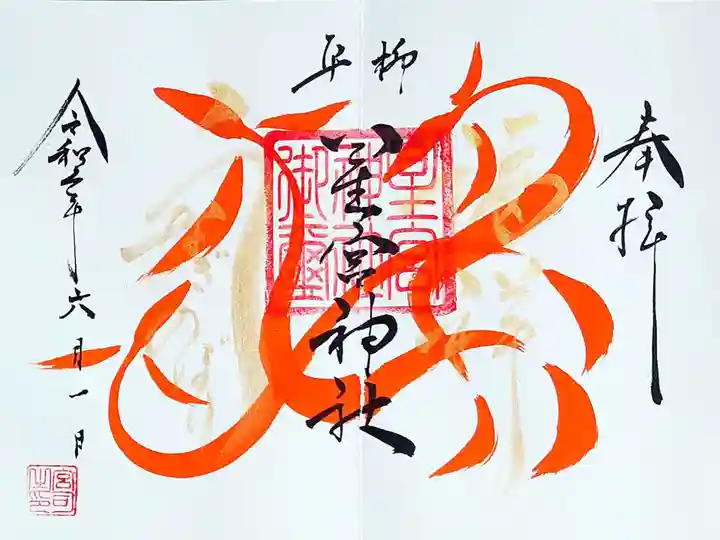 奉拝
平柳
星宮神社
星宮神社御璽
令和二年六月一日
宮司之印